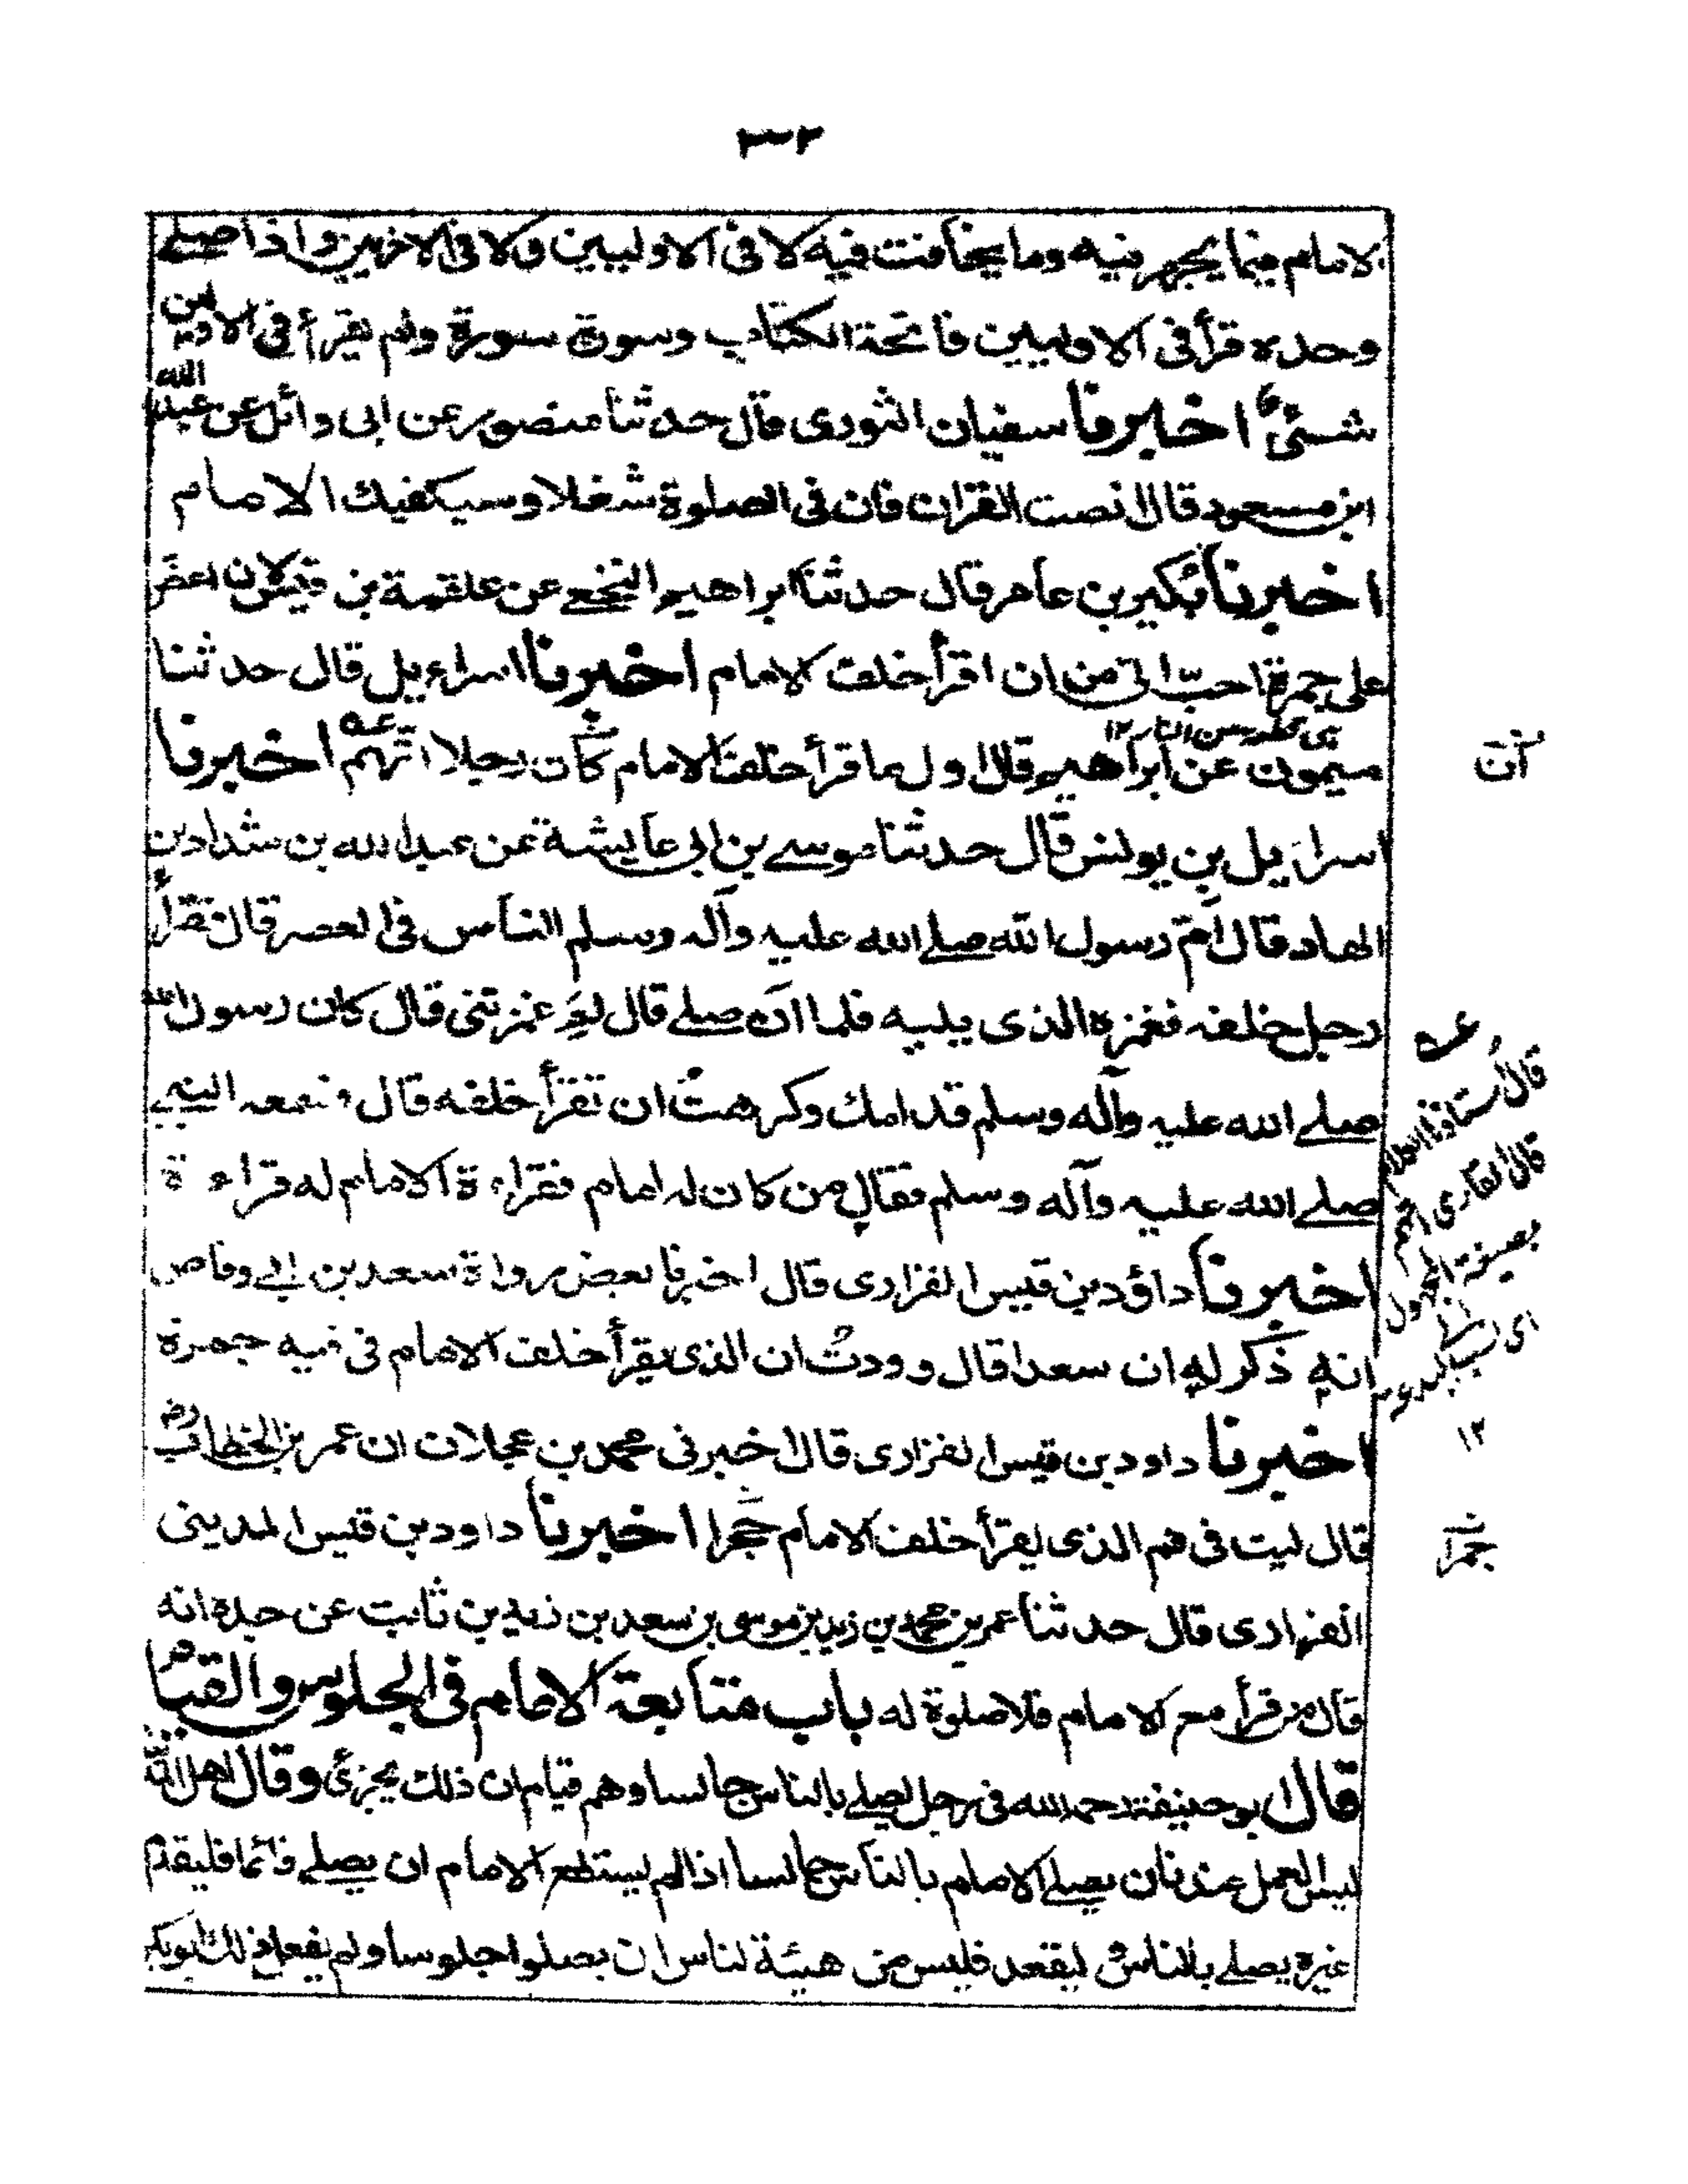 ٣٢
الامام فيما يجهر فيه وما يخافت فيه لا فى الاوليين ولا فى الاخريين واذا صلے
وحده قرأ فى الاوليين فاتحة الكتاب وسورة سورة ولم يقرأ فى
شئ اخبرنا سفيان الثورى قال حدثنا منصور عن ابى وائل عن عبد الله
ابن مسعود قال انصت القران فان فى الصلوة شغلا وسيكفيك الامام
اخبرنا بكير بن عامر قال حدثنا ابراهيم النخعے عن علقمة بن قيس لان اعض
على جمرة احبّ الى من ان اقرأ خلف الامام اخبرنا اسراءيل قال حدثنا
ميمون عن ابراهيم قال اول ما قرأ خلف الامام كان رجلا اتهم عه اخبرنا
اسراءيل بن يونس قال حدثنا موسے بن ابى عايشة عن عبد الله بن شداد بن
الهاد قال امّ رسول الله صلے الله عليه وآله وسلم الناس فى العصر قال فقرأ
رجل خلفه فغمزه الذى يليه فلما ان صلے قال لم غمزتنى قال كان رسول الله
صلے الله عليه وآله وسلم قدامك وكرهت ان تقرأ خلفه قال فسمعه النبے
صلے الله عليه وآله وسلم فقال من كان له امام فقراءة الامام له قراءة
اخبرنا داؤد بن قيس الفزارى قال اخبرنا بعض رواة سعد بن ابے وقاص
انه ذكر له ان سعدا قال وودتُ ان الذى يقرأ خلف الامام فى فيه جمرة
اخبرنا داود بن قيس الفزارى قال اخبرنى محمد بن عجلان ان عمر بن الخطاب رض
قال ليت فى فم الذى يقرأ خلف الامام حجرا اخبرنا داود بن قيس المدينى
الفزارى قال حدثنا عمر بن محمد بن زيد بن موسى بن سعد بن زيد بن ثابت عن جده انه
قال من قرأ مع الامام فلا صلوة له باب متابعة الامام فى الجلوس والقيام
قال ابو حنيفة رحمه الله فى رجل يصلے بالناس جالسا وهم قيام ان ذلك يجزئ وقال اهل
ليس العمل عندنا ان يصلے الامام بالناس جالسا اذا لم يستطع الامام ان يصلے قائما فليقدم
غيره يصلے بالناس ليقعد فليس من هيئة الناس ان يصلوا جلوسا ولم يفعل ذلك ابو بكر
عه
قال
قال القارى اتهم
بصيغة المجهول
اى
١٢